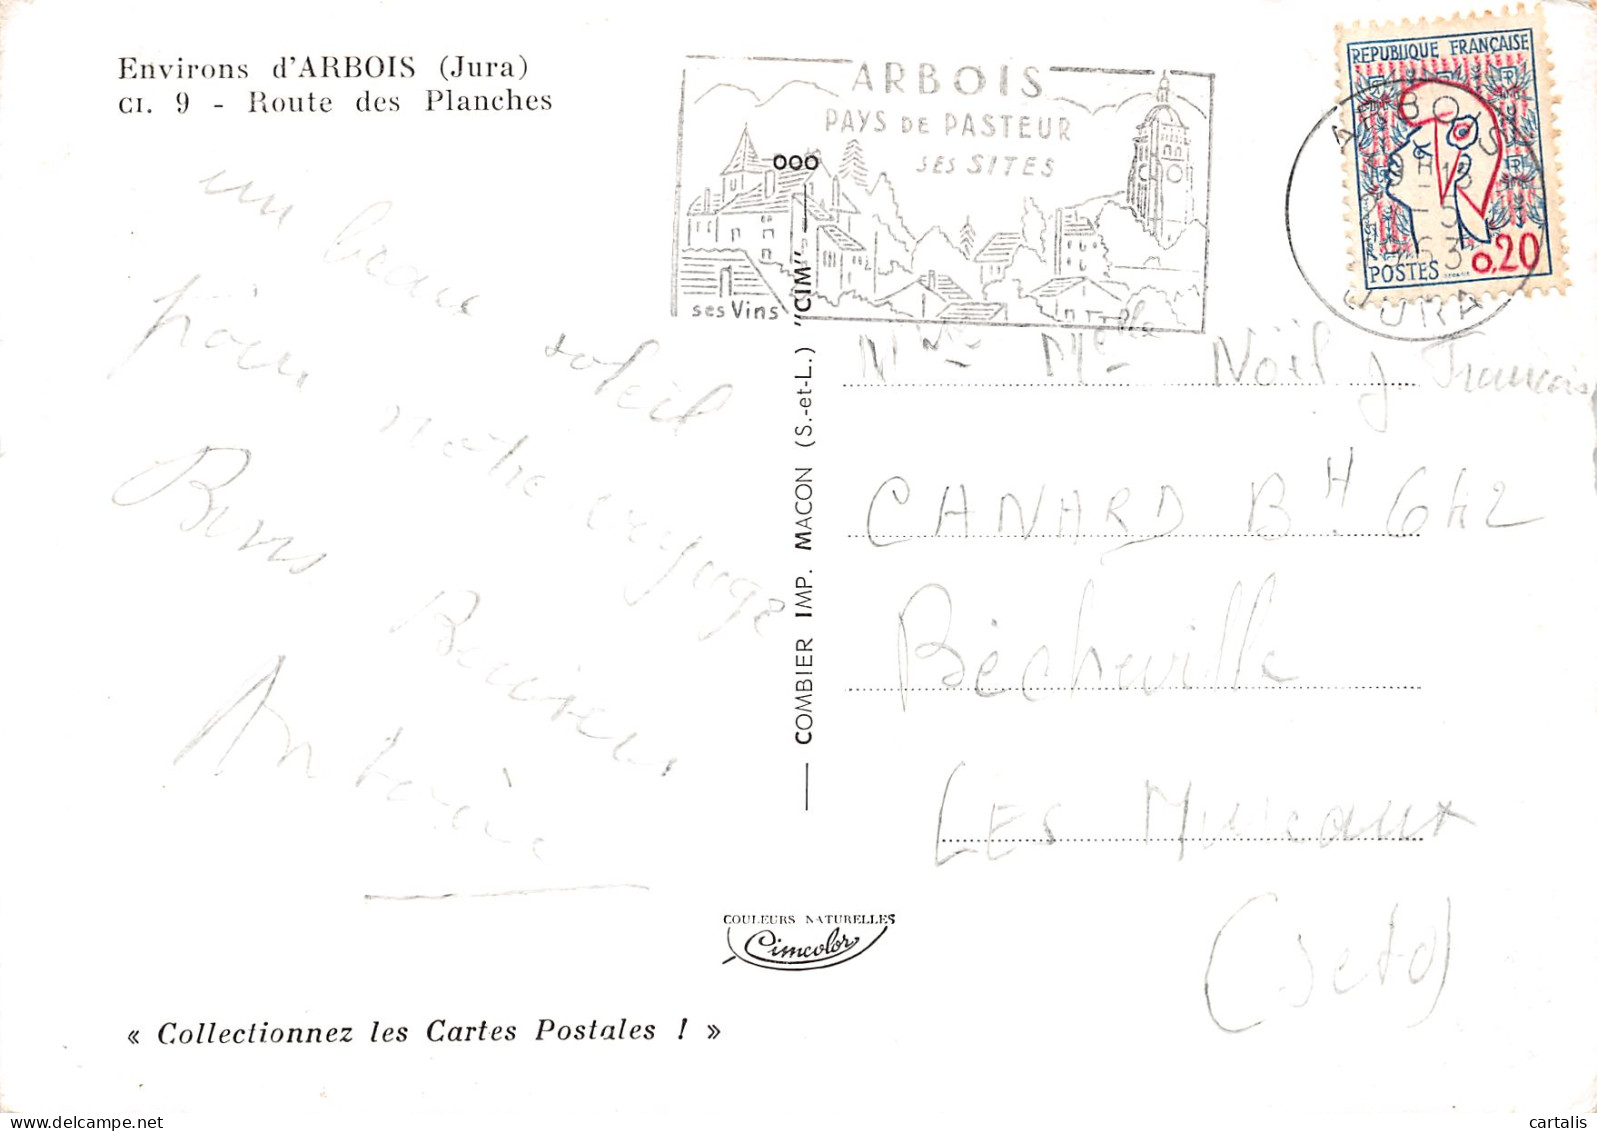 Environs d'ARBOIS (Jura)
CI. 9 - Route des Planches
un beau soleil
pour notre voyage
Bons Baisers
ARBOIS
PAYS DE PASTEUR
SES SITES
ses Vins
REPUBLIQUE FRANÇAISE
POSTES 0,20
ARBOIS
JURA
COMBIER IMP. MACON (S.-et-L.) "CIM"
Noël
CANARD Bt H 642
Bècheville
LES Mureaux
(S et O)
COULEURS NATURELLES
Cimcolor
« Collectionnez les Cartes Postales ! »
cartalis